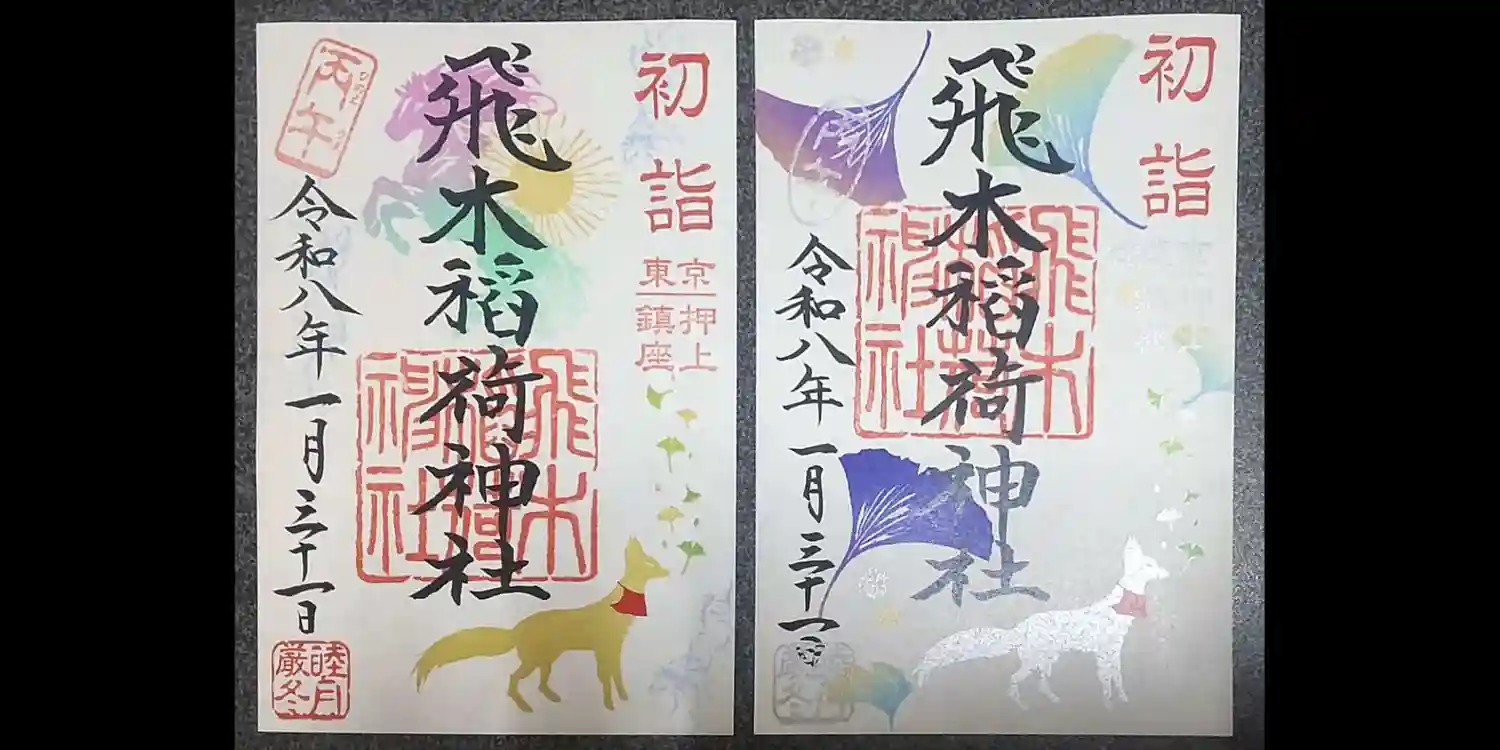 初詣
東京
押上
鎮座
飛木稲荷神社
飛木稲荷神社
丙午
ひのえうま
令和八年一月三十一日
睦月
厳冬
初詣
飛木稲荷神社
飛木稲荷神社
令和八年一月三十一日
睦月
厳冬